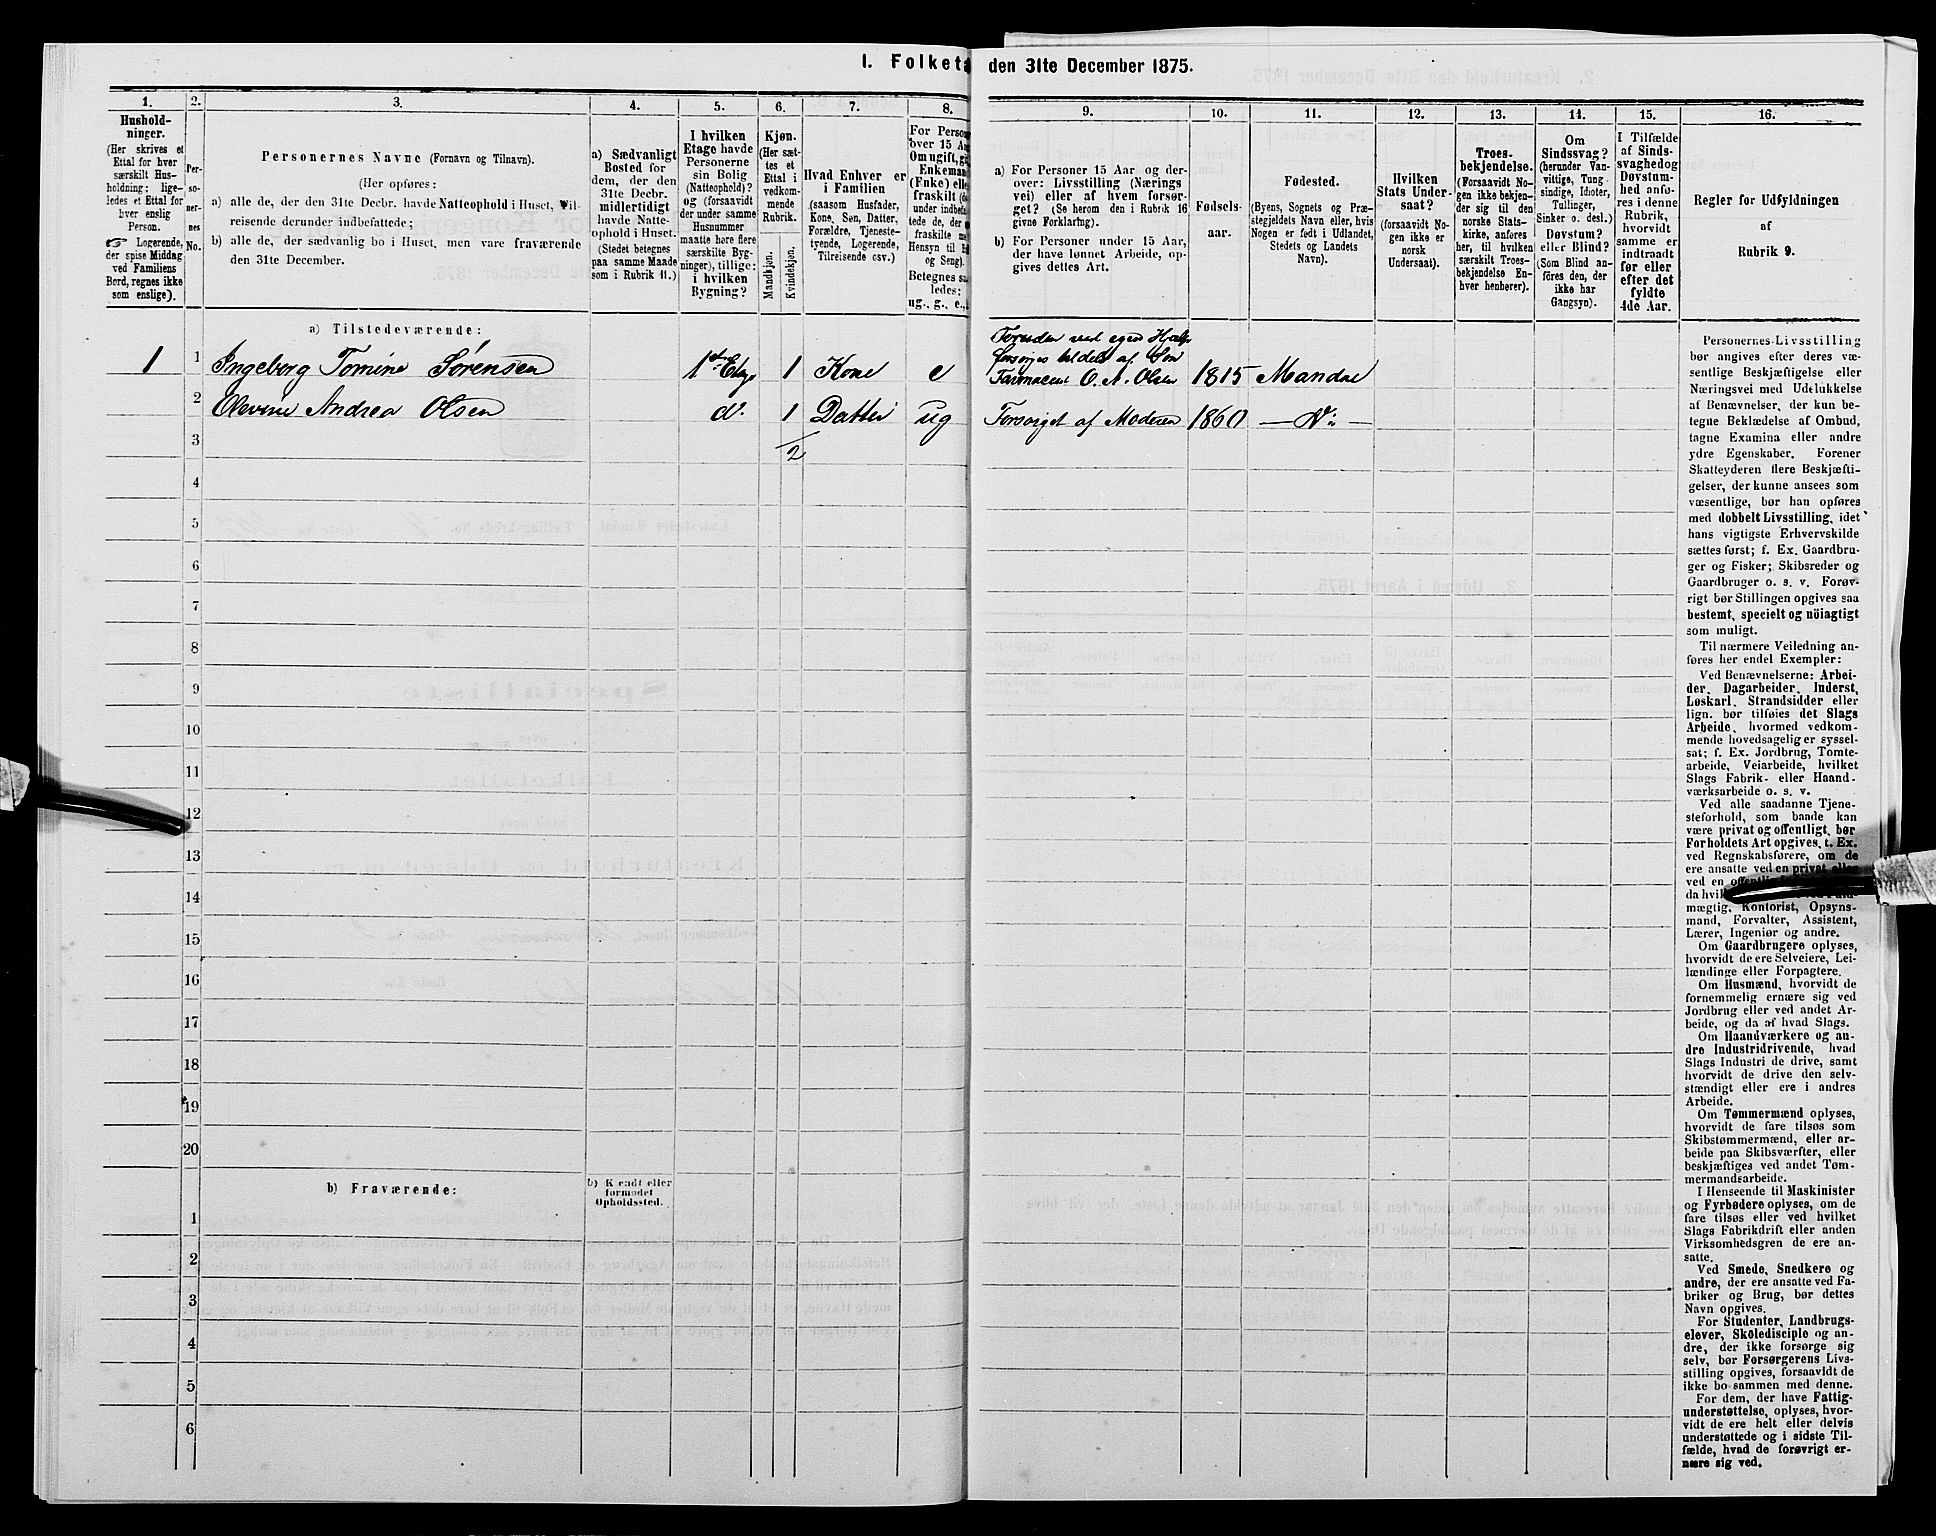 I. Folketæ
den 31te December 1875.
1.
2.
3.
4.
5.
6.
7.
8.
9.
10.
11.
12.
13.
14.
15.
16.
Hushold-
ninger.
(Her skrives et
Ettal for hver
særskilt Hus-
holdning; lige-
ledes et Ettal for
hver enslig
Person.
☞ Logerende,
der spise Middag
ved Familiens
Bord, regnes ikke
som enslige).
Per-
so-
ner-
nes
No.
Personernes Navne (Fornavn og Tilnavn).
(Her opføres:
a) alle de, der den 31te Decbr. havde Natteophold i Huset, Til-
reisende derunder indbefattede;
b) alle de, der sædvanlig bo i Huset, men vare fraværende
den 31te December.
a) Sædvanligt
Bosted for
dem, der den
31te Decbr.
midlertidigt
havde Natte-
ophold i Huset.
(Stedet betegnes
paa samme Maade
som i Rubrik 11.)
I hvilken
Etage havde
Personerne
sin Bolig
(Natteophold)?
og (forsaavidt
der under samme
Husnummer
maatte høre flere
særskilte Byg-
ninger), tillige:
i hvilken
Bygning?
Kjøn.
(Her sæt-
tes et
Ettal i
vedkom-
mende
Rubrik.
Mandkjøn.
Kvindekjøn.
Hvad Enhver er
i Familien
(saasom Husfader,
Kone, Søn, Datter,
Forældre, Tjeneste-
tyende, Logerende,
Tilreisende osv.)
For Person
over 15 Aa
Om ugift, gi
Enkeman
(Enke) elle
fraskilt (de
under indbef
tede de, der
fraskilte m
Hensyn til B
og Seng).
Betegnes sa
ledes:
ug., g., e.,
a) For Personer 15 Aar og der-
over: Livsstilling (Nærings
vei) eller af hvem forsør-
get? (Se herom den i Rubrik 16
givne Forklaring).
b) For Personer under 15 Aar,
der have lønnet Arbeide, op-
gives dettes Art.
Fødsels-
aar.
Fødested.
(Byens, Sognets og Præ-
stegjeldets Navn eller, hvis
Nogen er født i Udlandet,
Stedets og Landets
Navn).
Hvilken
Stats Under-
saat?
(forsaavidt No-
gen ikke er
norsk
Undersaat).
Troes-
bekjendelse.
(Forsaavidt No-
gen ikke bekjen-
der sig til den
norske Stats-
kirke, anføres
her, til hvilken
særskilt Troes-
bekjendelse En-
hver henhører).
Om
Sindssvag?
(herunder Van-
vittige, Tung-
sindige, Idioter,
Tullinger,
Sinker o. desl.)
Døvstum?
eller Blind?
(Som Blind an-
føres den, der
ikke har
Gangsyn).
I Tilfælde
af Sinds-
svaghed og
Døvstum-
hed anfø-
res i denne
Rubrik,
hvorvidt
samme er
indtraadt
før eller
efter det
fyldte
4de Aar.
Regler for Udfyldningen
af
Rubrik 9.
a) Tilstedeværende:
1
1
Ingeborg Tomine Sörensen
1ste Etage
1
Kone
e
Foruden ved egen Hjelp
forsörges tildels af Søn
Farmaceut O. A. Olsen
1815
Mandal
2
Elevine Andrea Olsen
do
1
Datter
ug
Forsørget af Moderen
1860
— Do —
3
2
4
5
6
7
8
9
10
11
12
13
14
15
16
17
18
19
20
b) Fraværende:
b) Kjendt eller
formodet
Opholdssted.
1
2
3
4
5
6
Personernes Livsstilling
bør angives efter deres væ-
sentlige Beskjæftigelse eller
Næringsvei med Udelukkelse
af Benævnelser, der kun be-
tegne Beklædelse af Ombud,
tagne Examina eller andre
ydre Egenskaber. Forener
Skatteyderen flere Beskjæfti-
gelser, der kunne ansees som
væsentlige, bør han opføres
med dobbelt Livsstilling, idet
hans vigtigste Erhvervskilde
sættes først; f. Ex. Gaardbru-
ger og Fisker; Skibsreder og
Gaardbruger o. s. v. Forøv-
rigt bør Stillingen opgives saa
bestemt, specielt og nöiagtigt
som muligt.
Til nærmere Veiledning an-
føres her endel Exempler:
Ved Benævnelserne: Arbei-
der, Dagarbeider, Inderst,
Løskarl, Strandsidder eller
lign. bør tilføies det Slags
Arbeide, hvormed vedkom-
mende hovedsagelig er syssel-
sat; f. Ex. Jordbrug, Tomte-
arbeide, Veiarbeide, hvilket
Slags Fabrik- eller Haand-
værksarbeide o. s. v.
Ved alle saadanne Tjene-
steforhold, som baade kan
være privat og offentligt, bør
Forholdets Art opgives, t. Ex.
ved Regnskabsførere, om de
ere ansatte ved en privat eller
ved en
da hvil
mægtig, Kontorist, Opsyns-
mand, Forvalter, Assistent,
Lærer, Ingeniør og andre.
Om Gaardbrugere oplyses,
hvorvidt de ere Selveiere, Lei-
lændinge eller Forpagtere.
Om Husmænd, hvorvidt de
fornemmelig ernære sig ved
Jordbrug eller ved andet Ar-
beide, og da af hvad Slags.
Om Haandværkere og an-
dre Industridrivende, hvad
Slags Industri de drive, samt
hvorvidt de drive den selv-
stændigt eller ere i andres
Arbeide.
Om Tømmermænd oplyses,
hvorvidt de fare tilsøs som
Skibstømmermænd, eller ar-
beide paa Skibsværfter, eller
beskjæftiges ved andet Tøm-
mermandsarbeide.
I Henseende til Maskinister
og Fyrbødere oplyses, om de
fare tilsøs eller ved hvilket
Slags Fabrikdrift eller anden
Virksomhedsgren de ere an-
satte.
Ved Smede, Snedkere og
andre, der ere ansatte ved Fa-
briker og Brug, bør dettes
Navn opgives.
For Studenter, Landbrugs-
elever, Skoledisciple og an-
dre, der ikke forsørge sig
selv, bør Forsørgerens Livs-
stilling opgives, forsaavidt de
ikke bo sammen med denne.
For dem, der have Fattig-
understøttelse, oplyses, hvor-
vidt de ere helt eller delvis
understøttede og i sidste Til-
fælde, hvad de forøvrigt er-
nære sig ved.